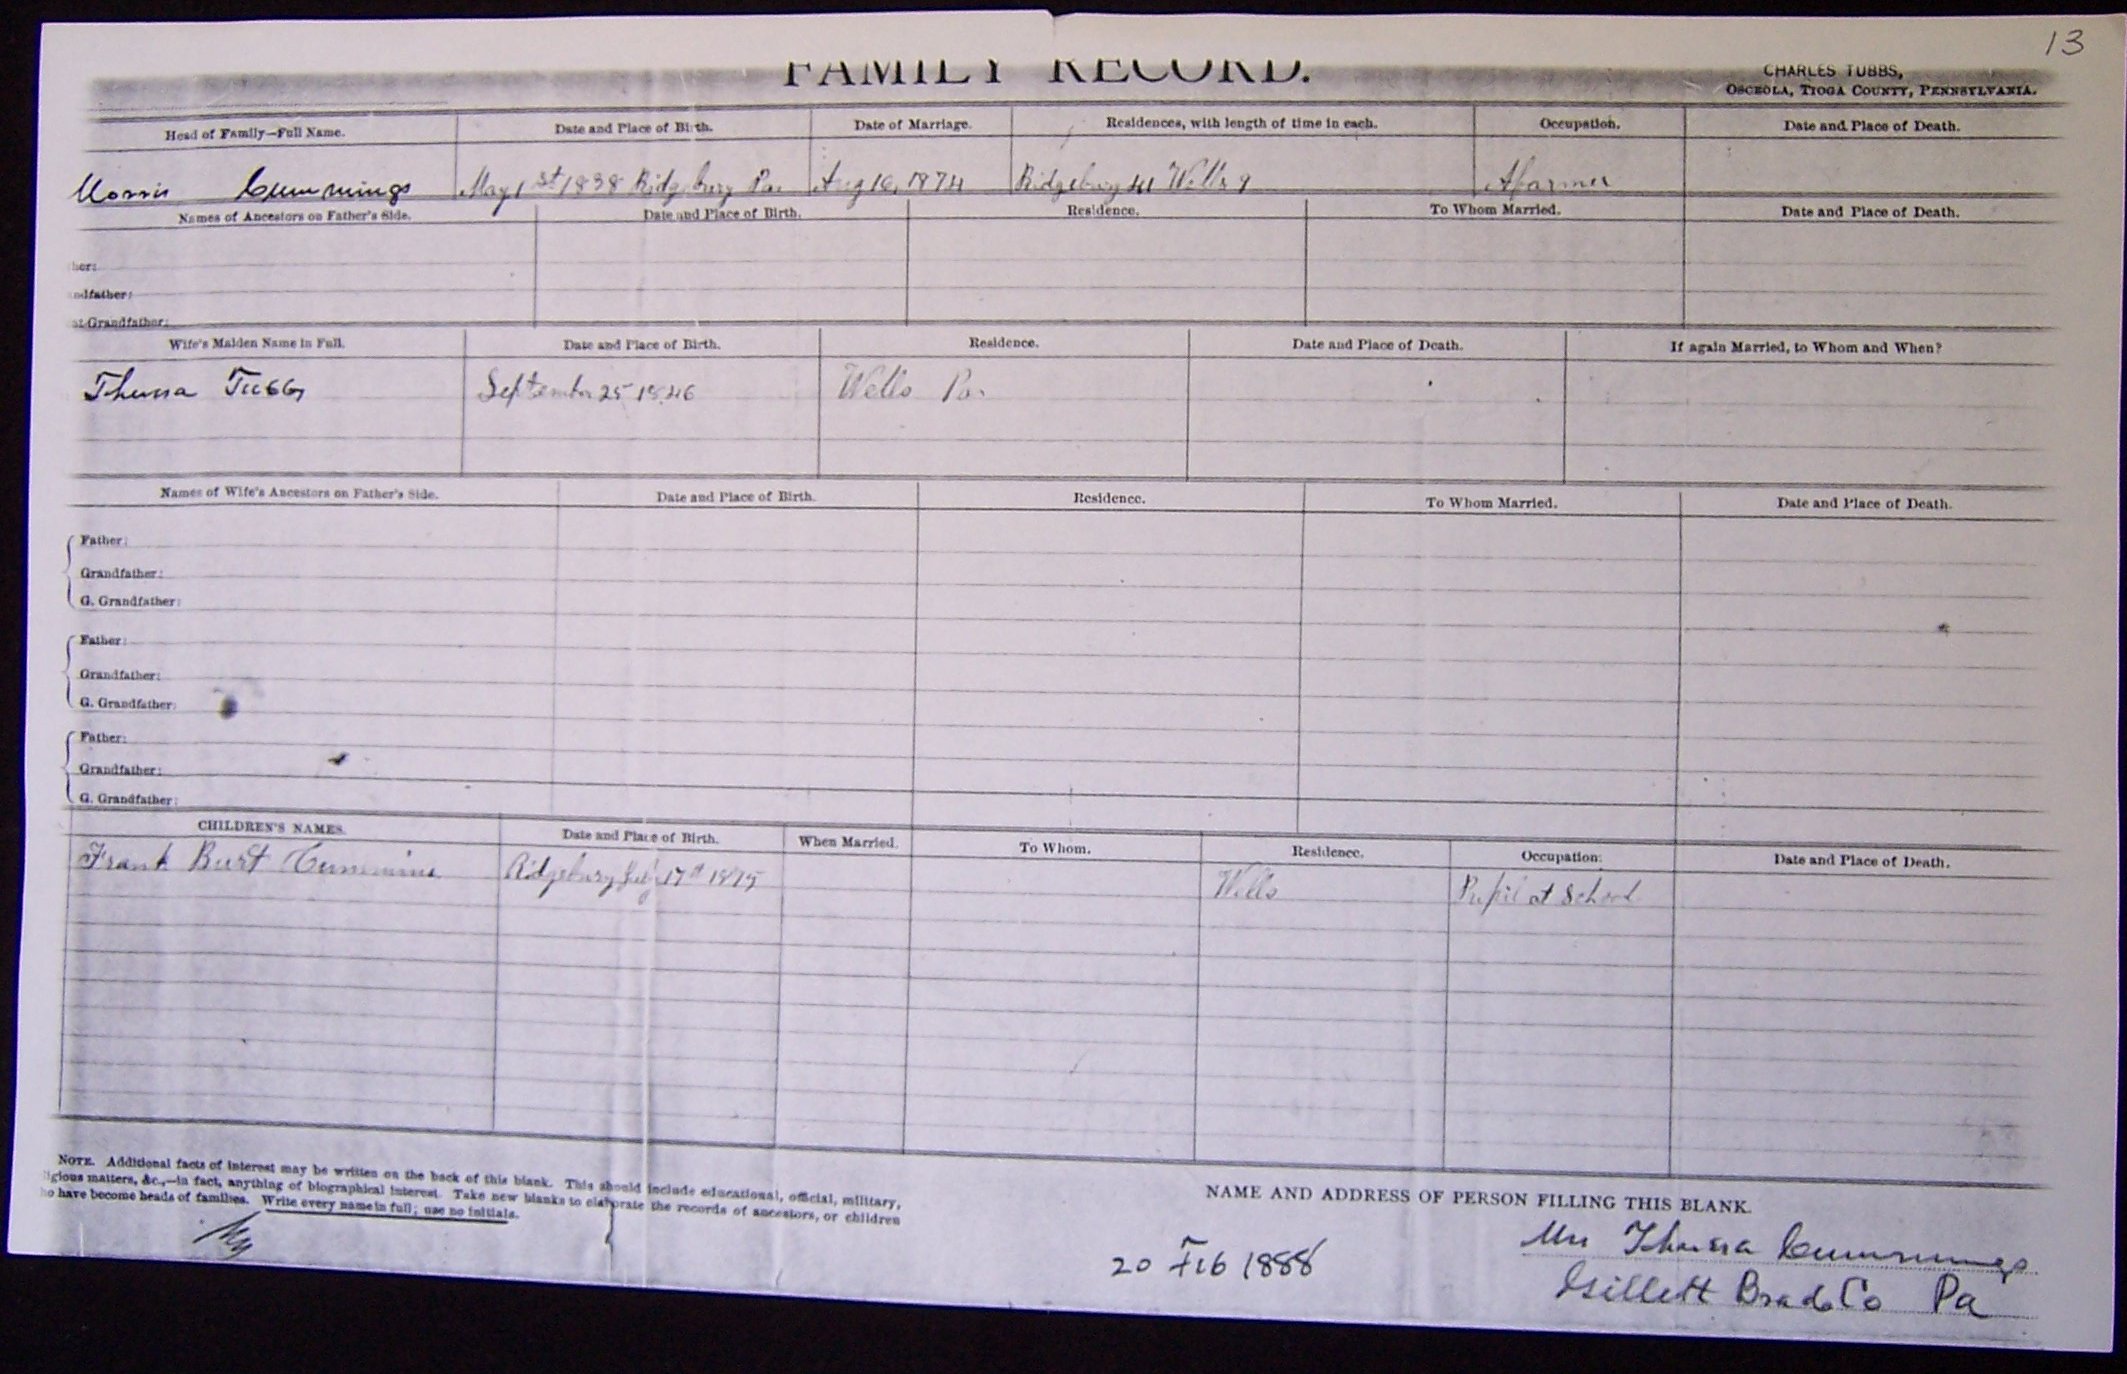 13
FAMILY RECORD.
CHARLES TUBBS,
OSCEOLA, TIOGA COUNTY, PENNSYLVANIA.
Head of Family—Full Name. Date and Place of Birth. Date of Marriage. Residences, with length of time in each. Occupation. Date and Place of Death.
Morris Cummings May 1st 1838 Ridgebury Pa. Aug 16, 1874 Ridgebury 41 Wells 9 A farmer
Names of Ancestors on Father's Side. Date and Place of Birth. Residence. To Whom Married. Date and Place of Death.
her:
ndfather:
at Grandfather:
Wife's Maiden Name in Full. Date and Place of Birth. Residence. Date and Place of Death. If again Married, to Whom and When?
Tubbs September 25 1846 Wells Pa.
Names of Wife's Ancestors on Father's Side. Date and Place of Birth. Residence. To Whom Married. Date and Place of Death.
Father:
Grandfather:
G. Grandfather:
Father:
Grandfather:
G. Grandfather:
Father:
Grandfather:
G. Grandfather:
CHILDREN'S NAMES. Date and Place of Birth. When Married. To Whom. Residence. Occupation. Date and Place of Death.
Frank Burt Cummins Ridgebury 17th 1875 Wells Pupil at School
NOTE. Additional facts of interest may be written on the back of this blank. This should include educational, official, military,
igious matters, &c.,—in fact, anything of biographical interest. Take new blanks to elaborate the records of ancestors, or children
ho have become heads of families. Write every name in full; use no initials.
NAME AND ADDRESS OF PERSON FILLING THIS BLANK.
Mrs Cummings
20 Feb 1888
Gillett Brad Co Pa